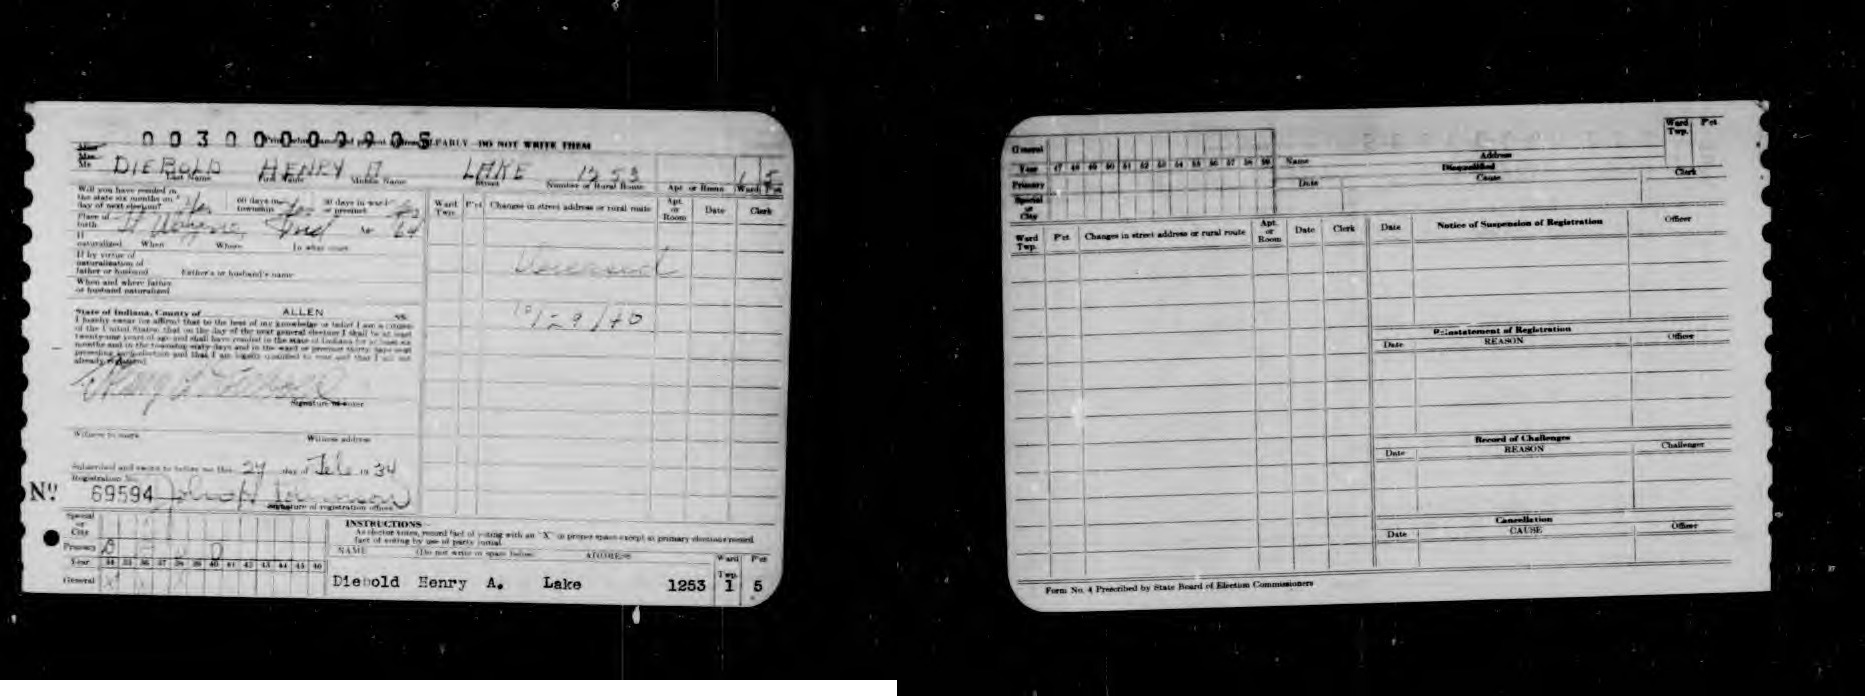 003000000905
Print below name and present address CLEARLY—DO NOT WRITE THEM
Miss
Mrs.
Mr. DIEBOLD HENRY A LAKE 1253 1 5
Last Name First Name Middle Name Street Number or Rural Route Apt. or Room Ward P'ct
Will you have resided in
the state six months on
day of next election? Yes 60 days in township Yes 30 days in ward or precinct Yes
Place of
birth Ft Wayne, Ind
If
naturalized When Where In what court
If by virtue of
naturalization of
father or husband Father's or husband's name
When and where father
or husband naturalized
Ward Twp. P'ct Changes in street address or rural route Apt. or Room Date Clerk
Deceased
10/29/40
State of Indiana, County of ALLEN ss.
I hereby swear (or affirm) that to the best of my knowledge or belief I am a citizen
of the United States; that on the day of the next general election I shall be at least
twenty-one years of age and shall have resided in the state of Indiana for at least six
months and in the township sixty days and in the ward or precinct thirty days next
preceding such election and that I am legally qualified to vote and that I am not
already registered.
Henry A. Diebold
Signature of voter
Witness to mark Witness address
Subscribed and sworn to before me this 24 day of Feb 1934
Registration No.
Nº 69594
Signature of registration officer
Special
or
City
Primary D D D
Year 34 35 36 37 38 39 40 41 42 43 44 45 46
General X X X
INSTRUCTIONS
As elector votes, record fact of voting with an "X" in proper space except at primary elections record
fact of voting by use of party initial.
NAME (Do not write in space below) ADDRESS Ward Twp. P'ct
Diebold Henry A. Lake 1253 1 5
General
Year 47 48 49 50 51 52 53 54 55 56 57 58 59
Primary
Special
or
City
Name Address Ward Twp. P'ct
Disqualified
Date Cause Clerk
Ward Twp. P'ct Changes in street address or rural route Apt. or Room Date Clerk
Date Notice of Suspension of Registration Officer
Reinstatement of Registration
Date REASON Officer
Record of Challenges
Date REASON Challenger
Cancellation
Date CAUSE Officer
Form No. 4 Prescribed by State Board of Election Commissioners